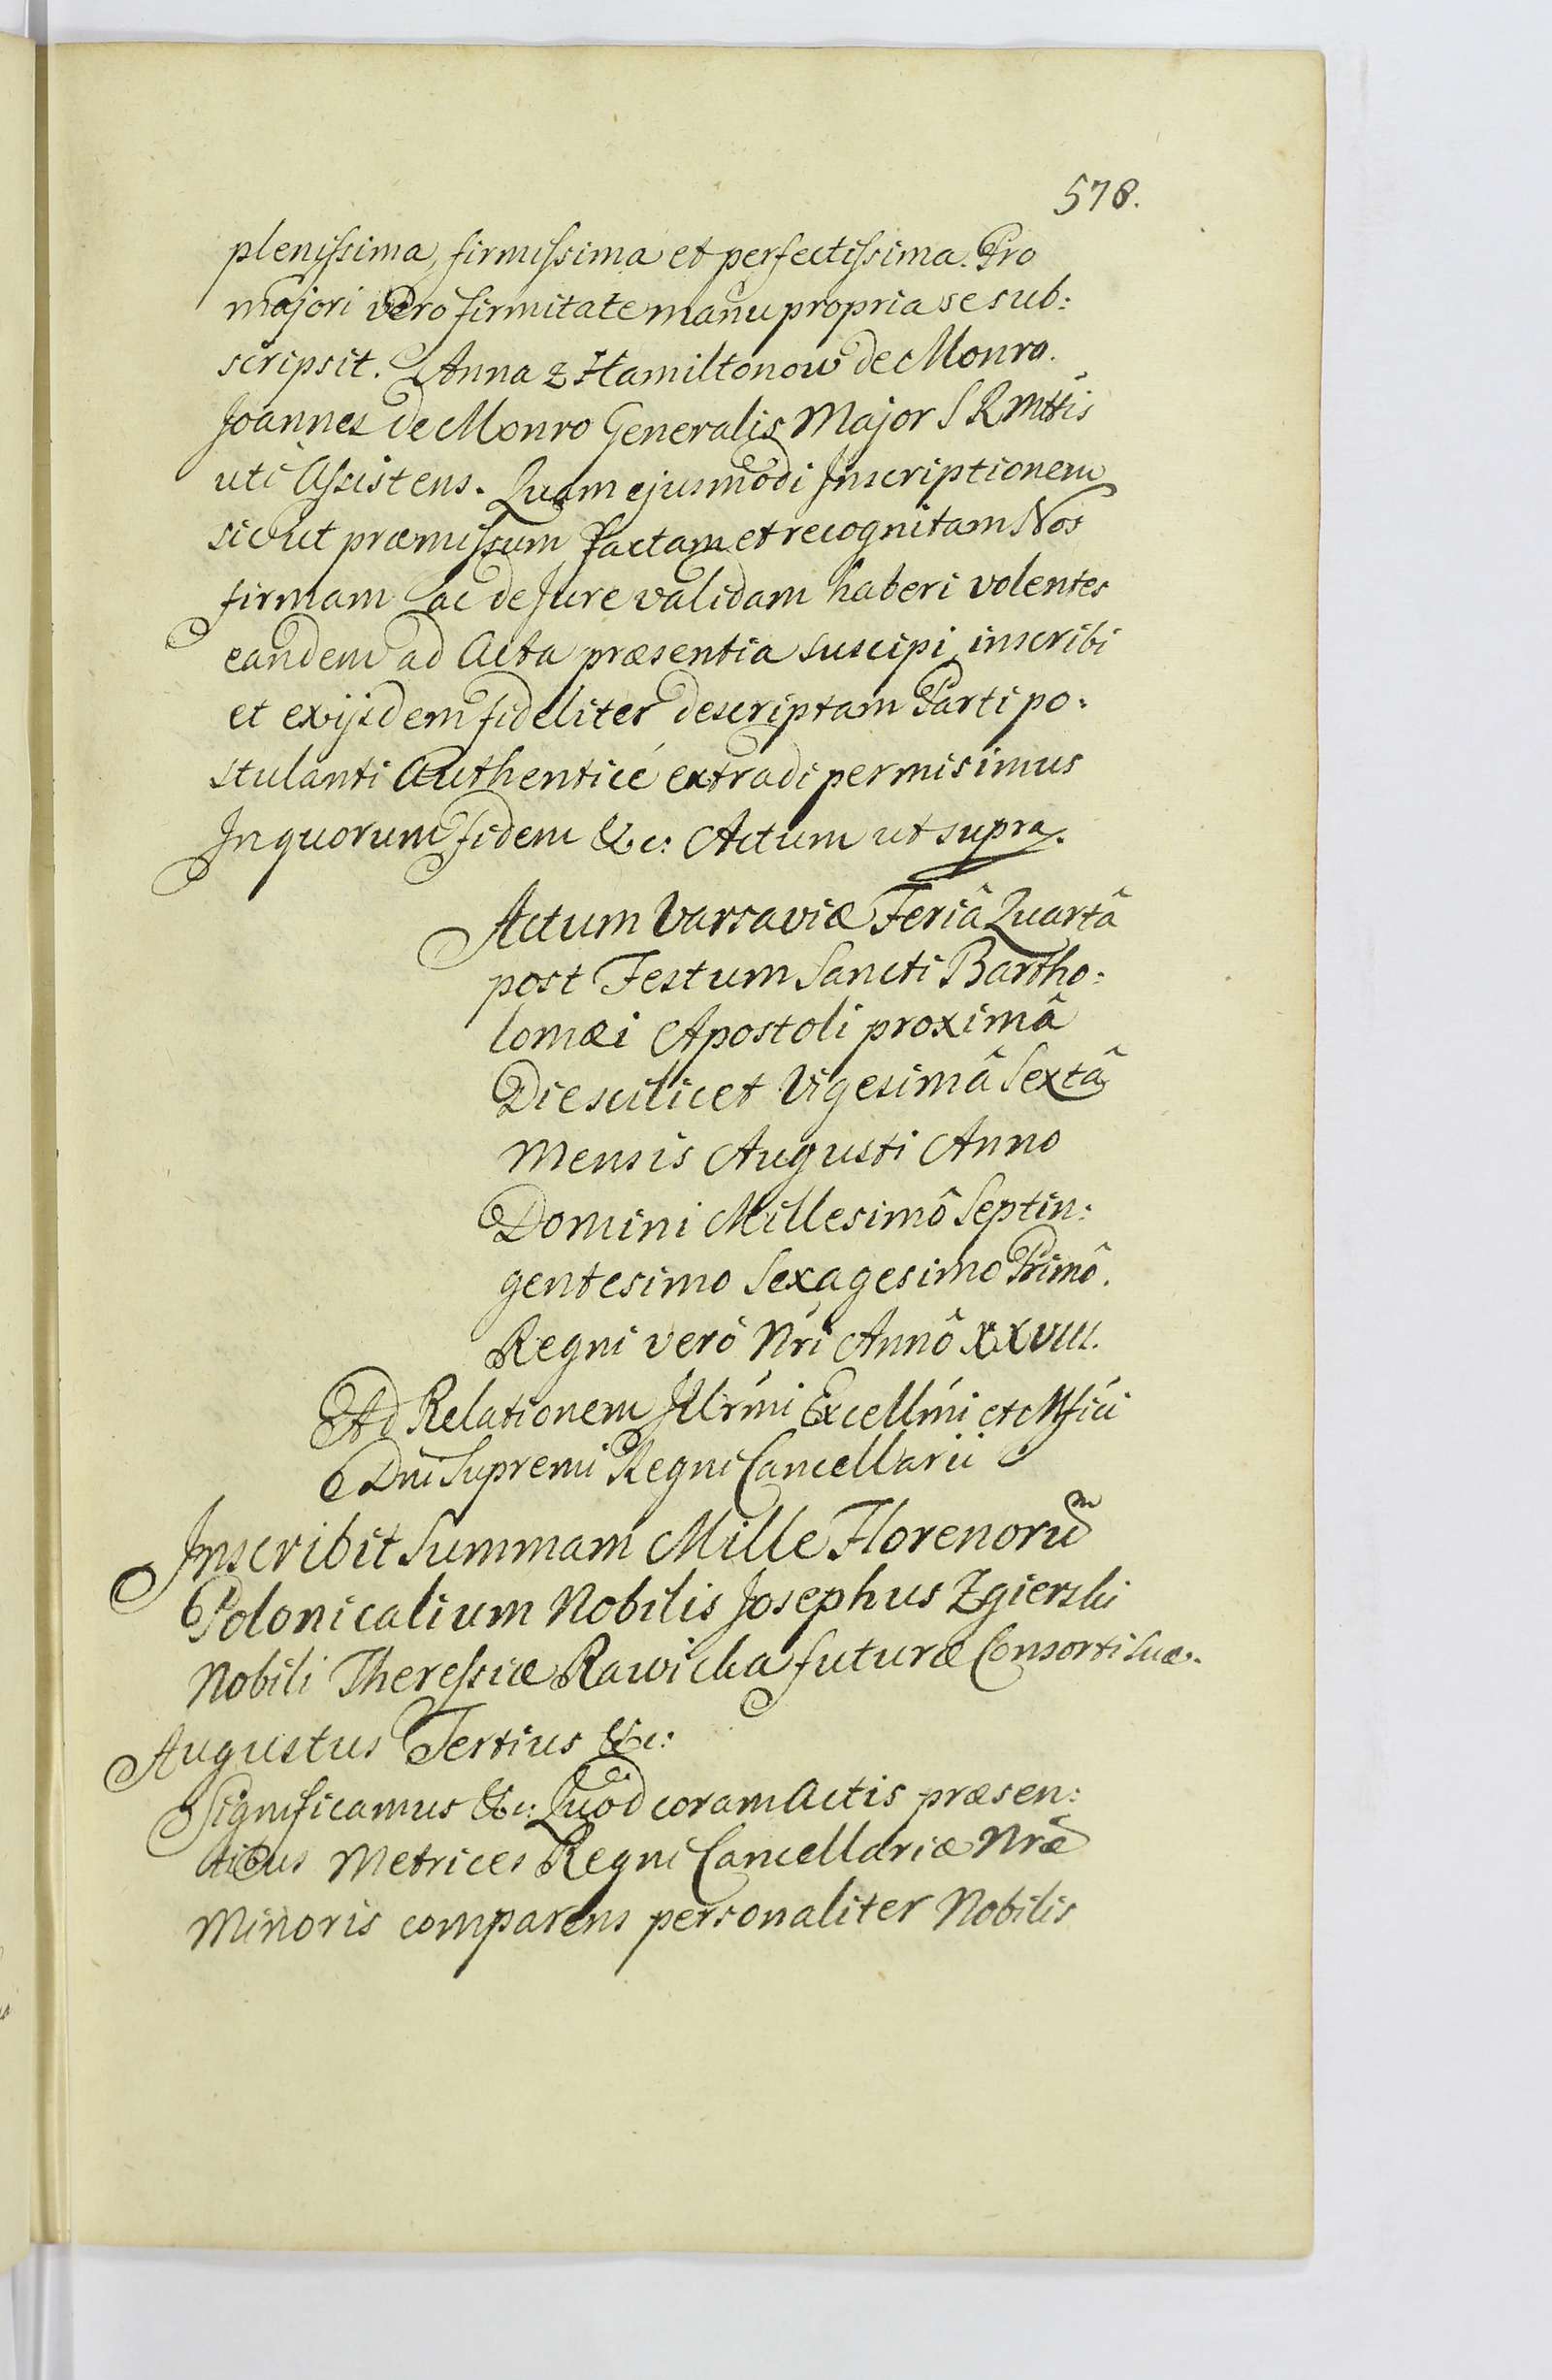 578.
plenissima, firmissima et perfectissima. Pro
majori vero firmitate manu propria se sub:
scripsit. Anna z Hamiltonow de Monro.
Joannes de Monro Generalis Major S R Mttis
uti Assistens. Quam ejusmodi Inscriptionem
sicut præmissum factam et recognitam Nos
firmam ac de Jure validam haberi volentes
eandem ad Acta præsentia suscipi, inscribi
et ex ijsdem fideliter descriptam Parti po:
stulanti Authenticé extradi permisimus
In quorum fidem &c: Actum ut supra.
Actum Varsaviæ Feriâ Quartâ
post Festum Sancti Bartho:
lomæi Apostoli proximâ
Die scilicet Vigesimâ Sextâ
Mensis Augusti Anno
Domini Millesimô Septin:
gentesimo Sexagesimo Primô.
Regni verò Nri Annô XXVIII.
Ad Relationem Illrmi Excellmi et Mfici
Dni Supremi Regni Cancellarii
Inscribit Summam Mille Florenorum
Polonicalium Nobilis Josephus Zgierski
Nobili Theressiæ Rawicka futuræ Consorti suæ.
Augustus Tertius &c:
Significamus &c: Quod coram Actis præsen:
tibus Metrices Regni Cancellariæ Nræ
Minoris comparens personaliter Nobilis